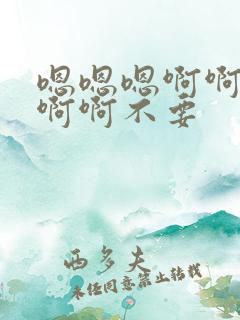 嗯嗯嗯啊啊
啊啊不要
西多夫
未经同意禁止转载